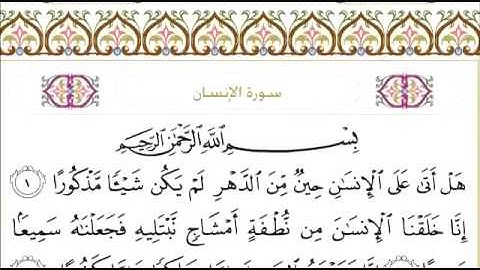 سورة الإنسان
بِسْمِ اللَّهِ الرَّحْمَٰنِ الرَّحِيمِ
هَلْ أَتَىٰ عَلَى الْإِنسَٰنِ حِينٌ مِّنَ الدَّهْرِ لَمْ يَكُن شَيْـًٔا مَّذْكُورًا ١
إِنَّا خَلَقْنَا الْإِنسَٰنَ مِن نُّطْفَةٍ أَمْشَاجٍ نَّبْتَلِيهِ فَجَعَلْنَٰهُ سَمِيعًۢا